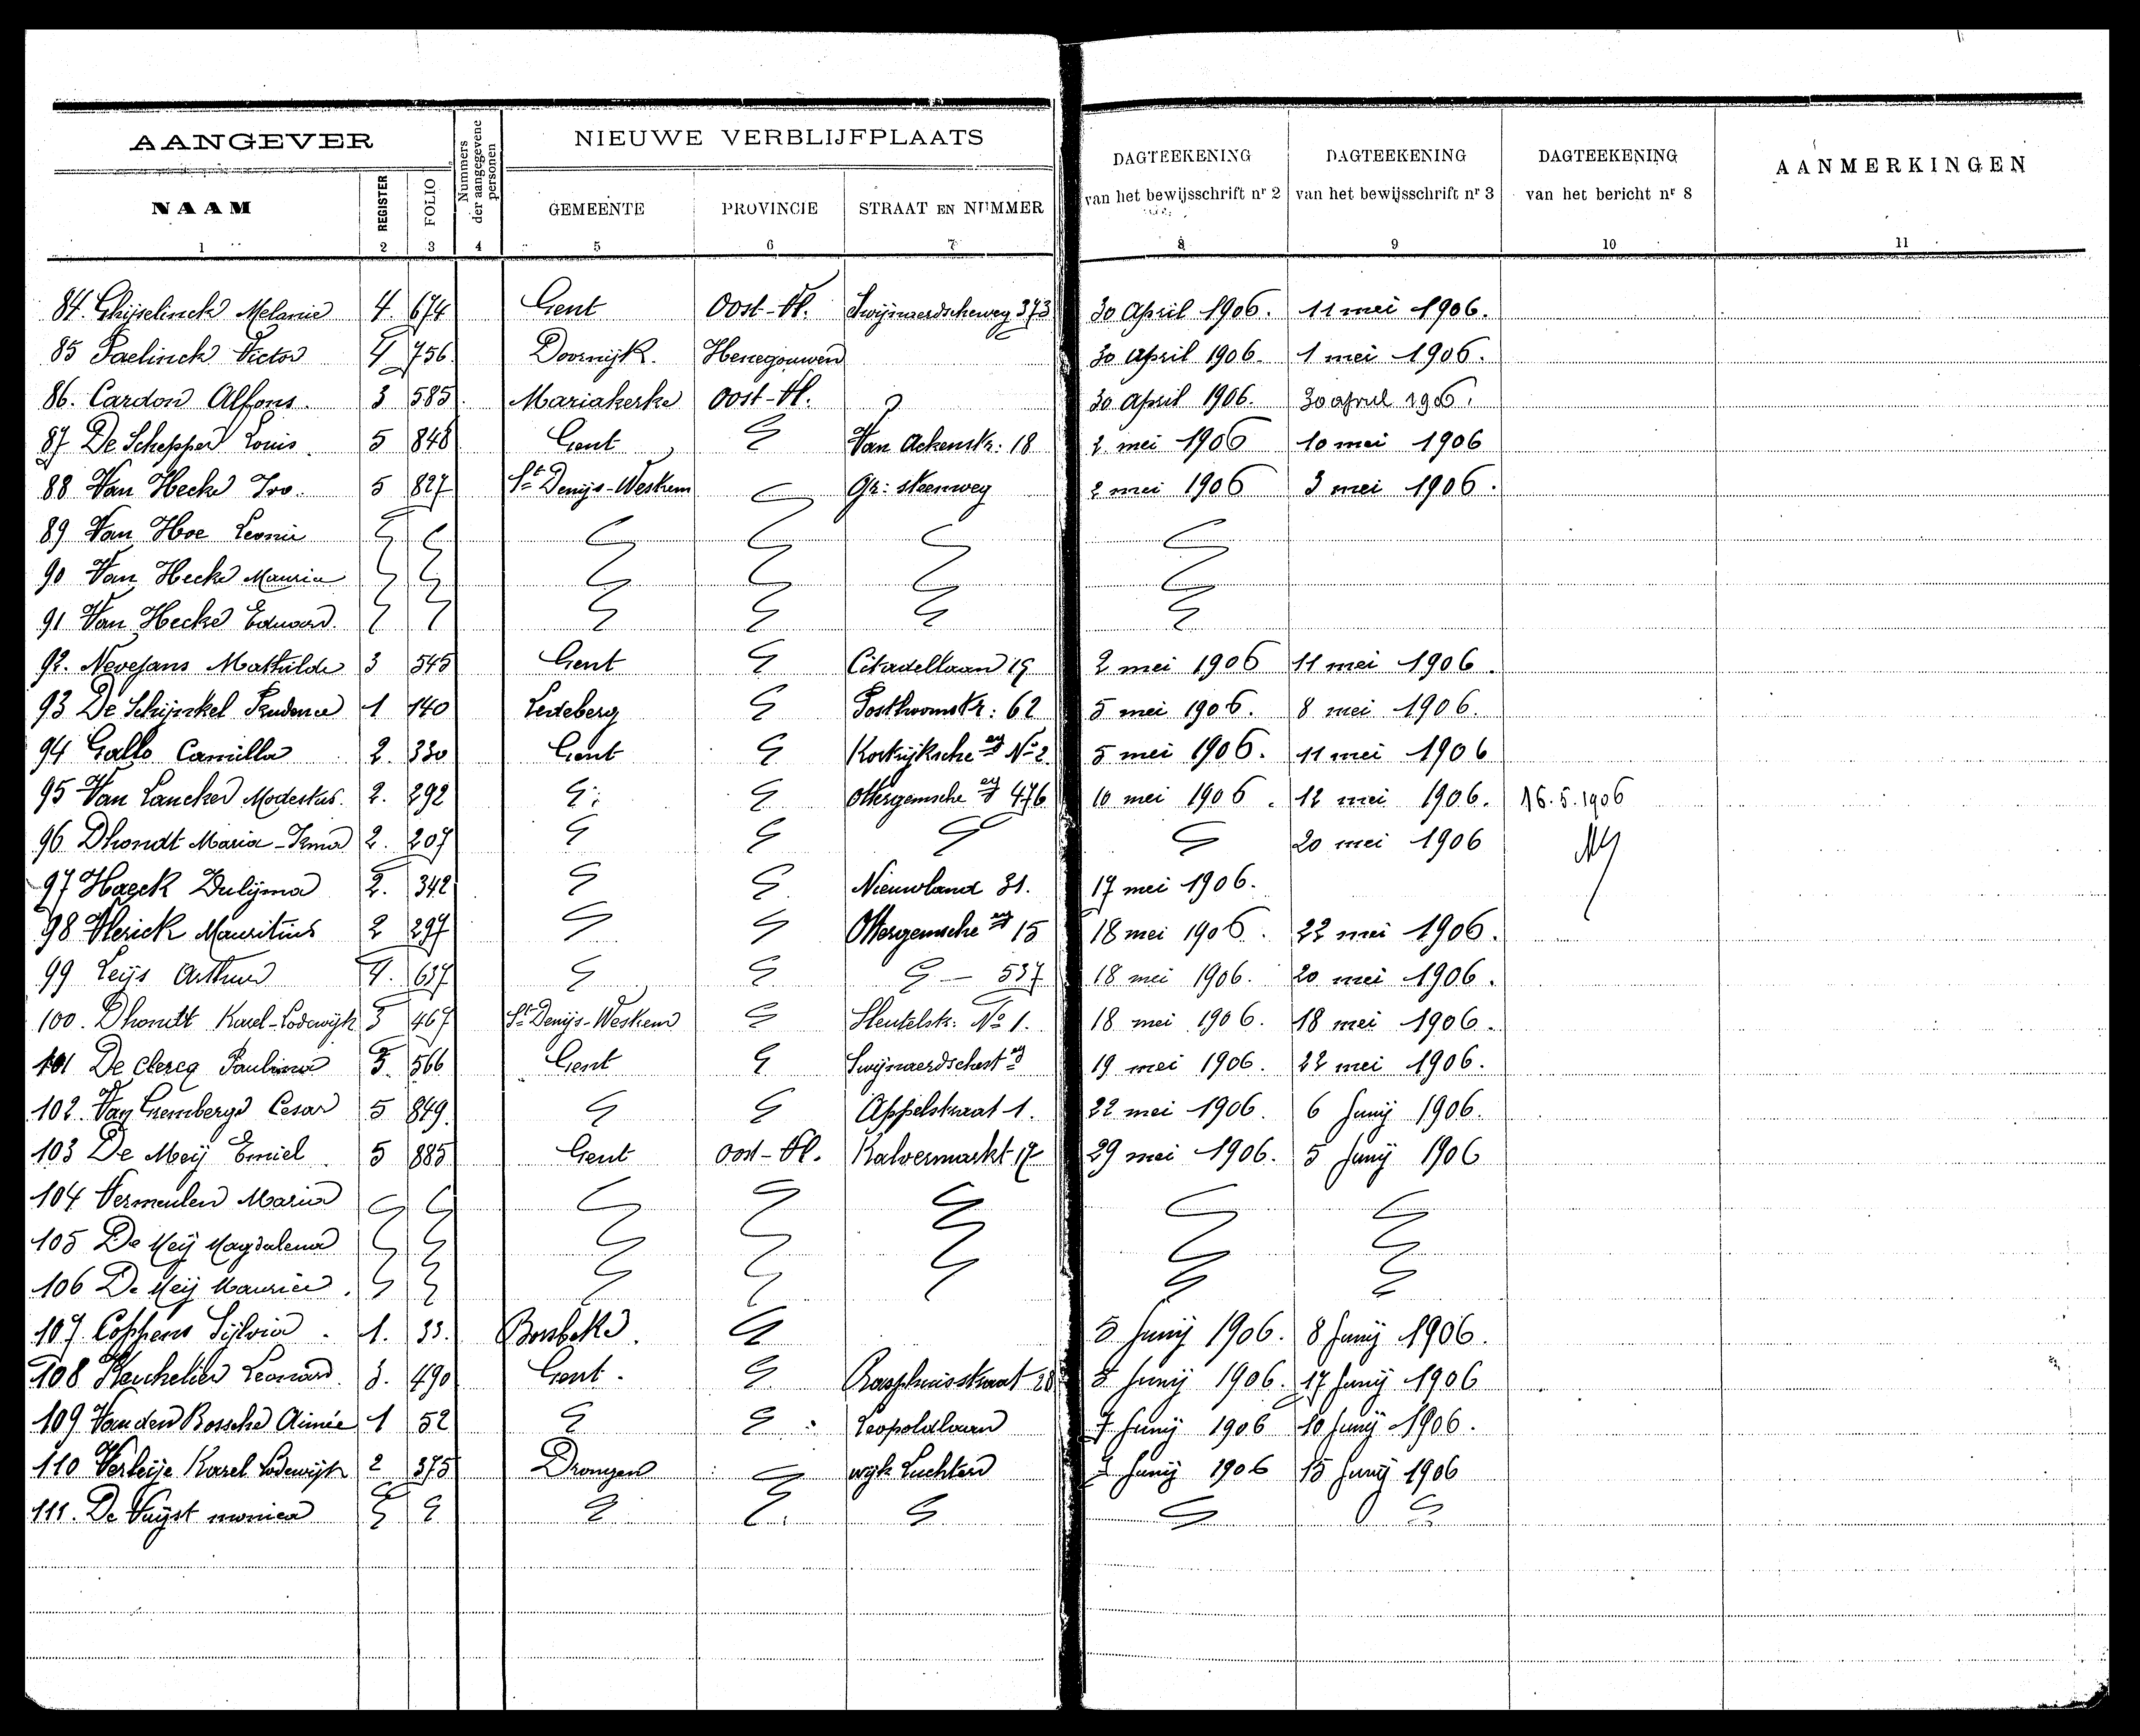 AANGEVER
Nummers der aangegevene personen
NIEUWE VERBLIJFPLAATS
DAGTEEKENING van het bewijsschrift nr 2
DAGTEEKENING van het bewijsschrift nr 3
DAGTEEKENING van het bericht nr 8
AANMERKINGEN
NAAM REGISTER FOLIO GEMEENTE PROVINCIE STRAAT EN NUMMER
1 2 3 4 5 6 7 8 9 10 11
84. Ghijselinck Melanie 4 674 Gent Oost-Vl. Swijnaerdscheweg 373 30 April 1906. 11 mei 1906.
85 Paelinck Victor 4 756 Doornijk. Henegouwen 30 april 1906. 1 mei 1906.
86. Cardon Alfons. 3 585 Mariakerke Oost-Vl. ? 30 April 1906. 30 april 1906.
87 De Schepper Louis. 5 848 Gent Van Ackenstr: 18 2 mei 1906 10 mei 1906
88 Van Hecke Ivo. 5 827 St Denijs-Westrem Gr: steenweg 2 mei 1906 3 mei 1906.
89 Van Hoe Leonie
90 Van Hecke Maurice
91 Van Hecke Eduard.
92. Nevejans Mathilde 3 545 Gent Citadellaan 19 2 mei 1906 11 mei 1906.
93 De Schijnkel Prudence 1 140 Ledeberg Posthoornstr: 62 5 mei 1906. 8 mei 1906.
94 Gallo Camilla 2. 330 Gent Kortrijksche No 2 5 mei 1906. 11 mei 1906
95 Van Lancker Modestus. 2. 292 Ottergemsche 476 10 mei 1906. 12 mei 1906. 16.5.1906
96 Dhondt Maria-Irma 2. 207 20 mei 1906
97 Haeck Zulijma 2. 342 Nieuwland 31. 17 mei 1906.
98 Vlerick Mauritius 2 297 Ottergemsche 15 18 mei 1906. 22 mei 1906.
99 Leijs Arthur 4. 637 - 537 18 mei 1906. 20 mei 1906.
100. Dhondt Karel-Lodewijk 3 467 St Denijs-Westrem Sleutelstr: No 1. 18 mei 1906. 18 mei 1906.
101 De Clercq Paulina 3. 566 Gent Swijnaerdschest 19 mei 1906. 22 mei 1906.
102. Van Grembergen Cesar 5 849. Appelstraat 1. 22 mei 1906. 6 Junij 1906.
103 De Meij Emiel 5 885 Gent Oost-Vl. Kalvermarkt 17 29 mei 1906. 5 Junij 1906
104 Vermeulen Maria
105 De Meij Magdalena
106 De Meij Maurice.
107. Coppens Sijlvia. 1. 33. Borsbeke. 5 Junij 1906. 8 Junij 1906.
108 Leonard. 3. 490 Gent. Rasphuisstraat 28 5 Junij 1906. 17 Junij 1906
109 Van den Bossche Aimée 1 52 Leopoldlaan 7 Junij 1906 10 Junij 1906.
110 Verleije Karel Lodewijk 2 375 Drongen wijk Luchteren Junij 1906 15 Junij 1906
111. De Vuijst monica